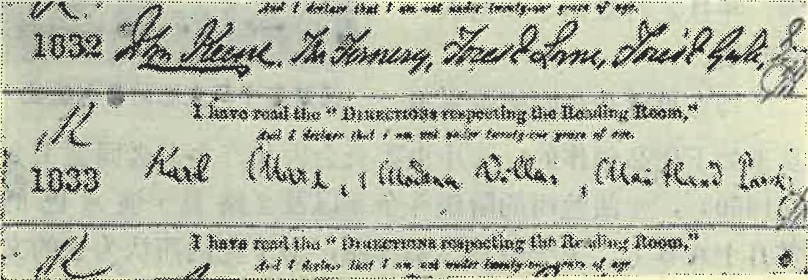 And I declare that I am not under twenty-one years of age.
1032 The Fernery,
I have read the "DIRECTIONS respecting the Reading Room,"
And I declare that I am not under twenty-one years of age.
R
1033 Karl Marx, 1 Modena Villas, Maitland Park
I have read the "DIRECTIONS respecting the Reading Room,"
R And I declare that I am not under twenty-one years of age.